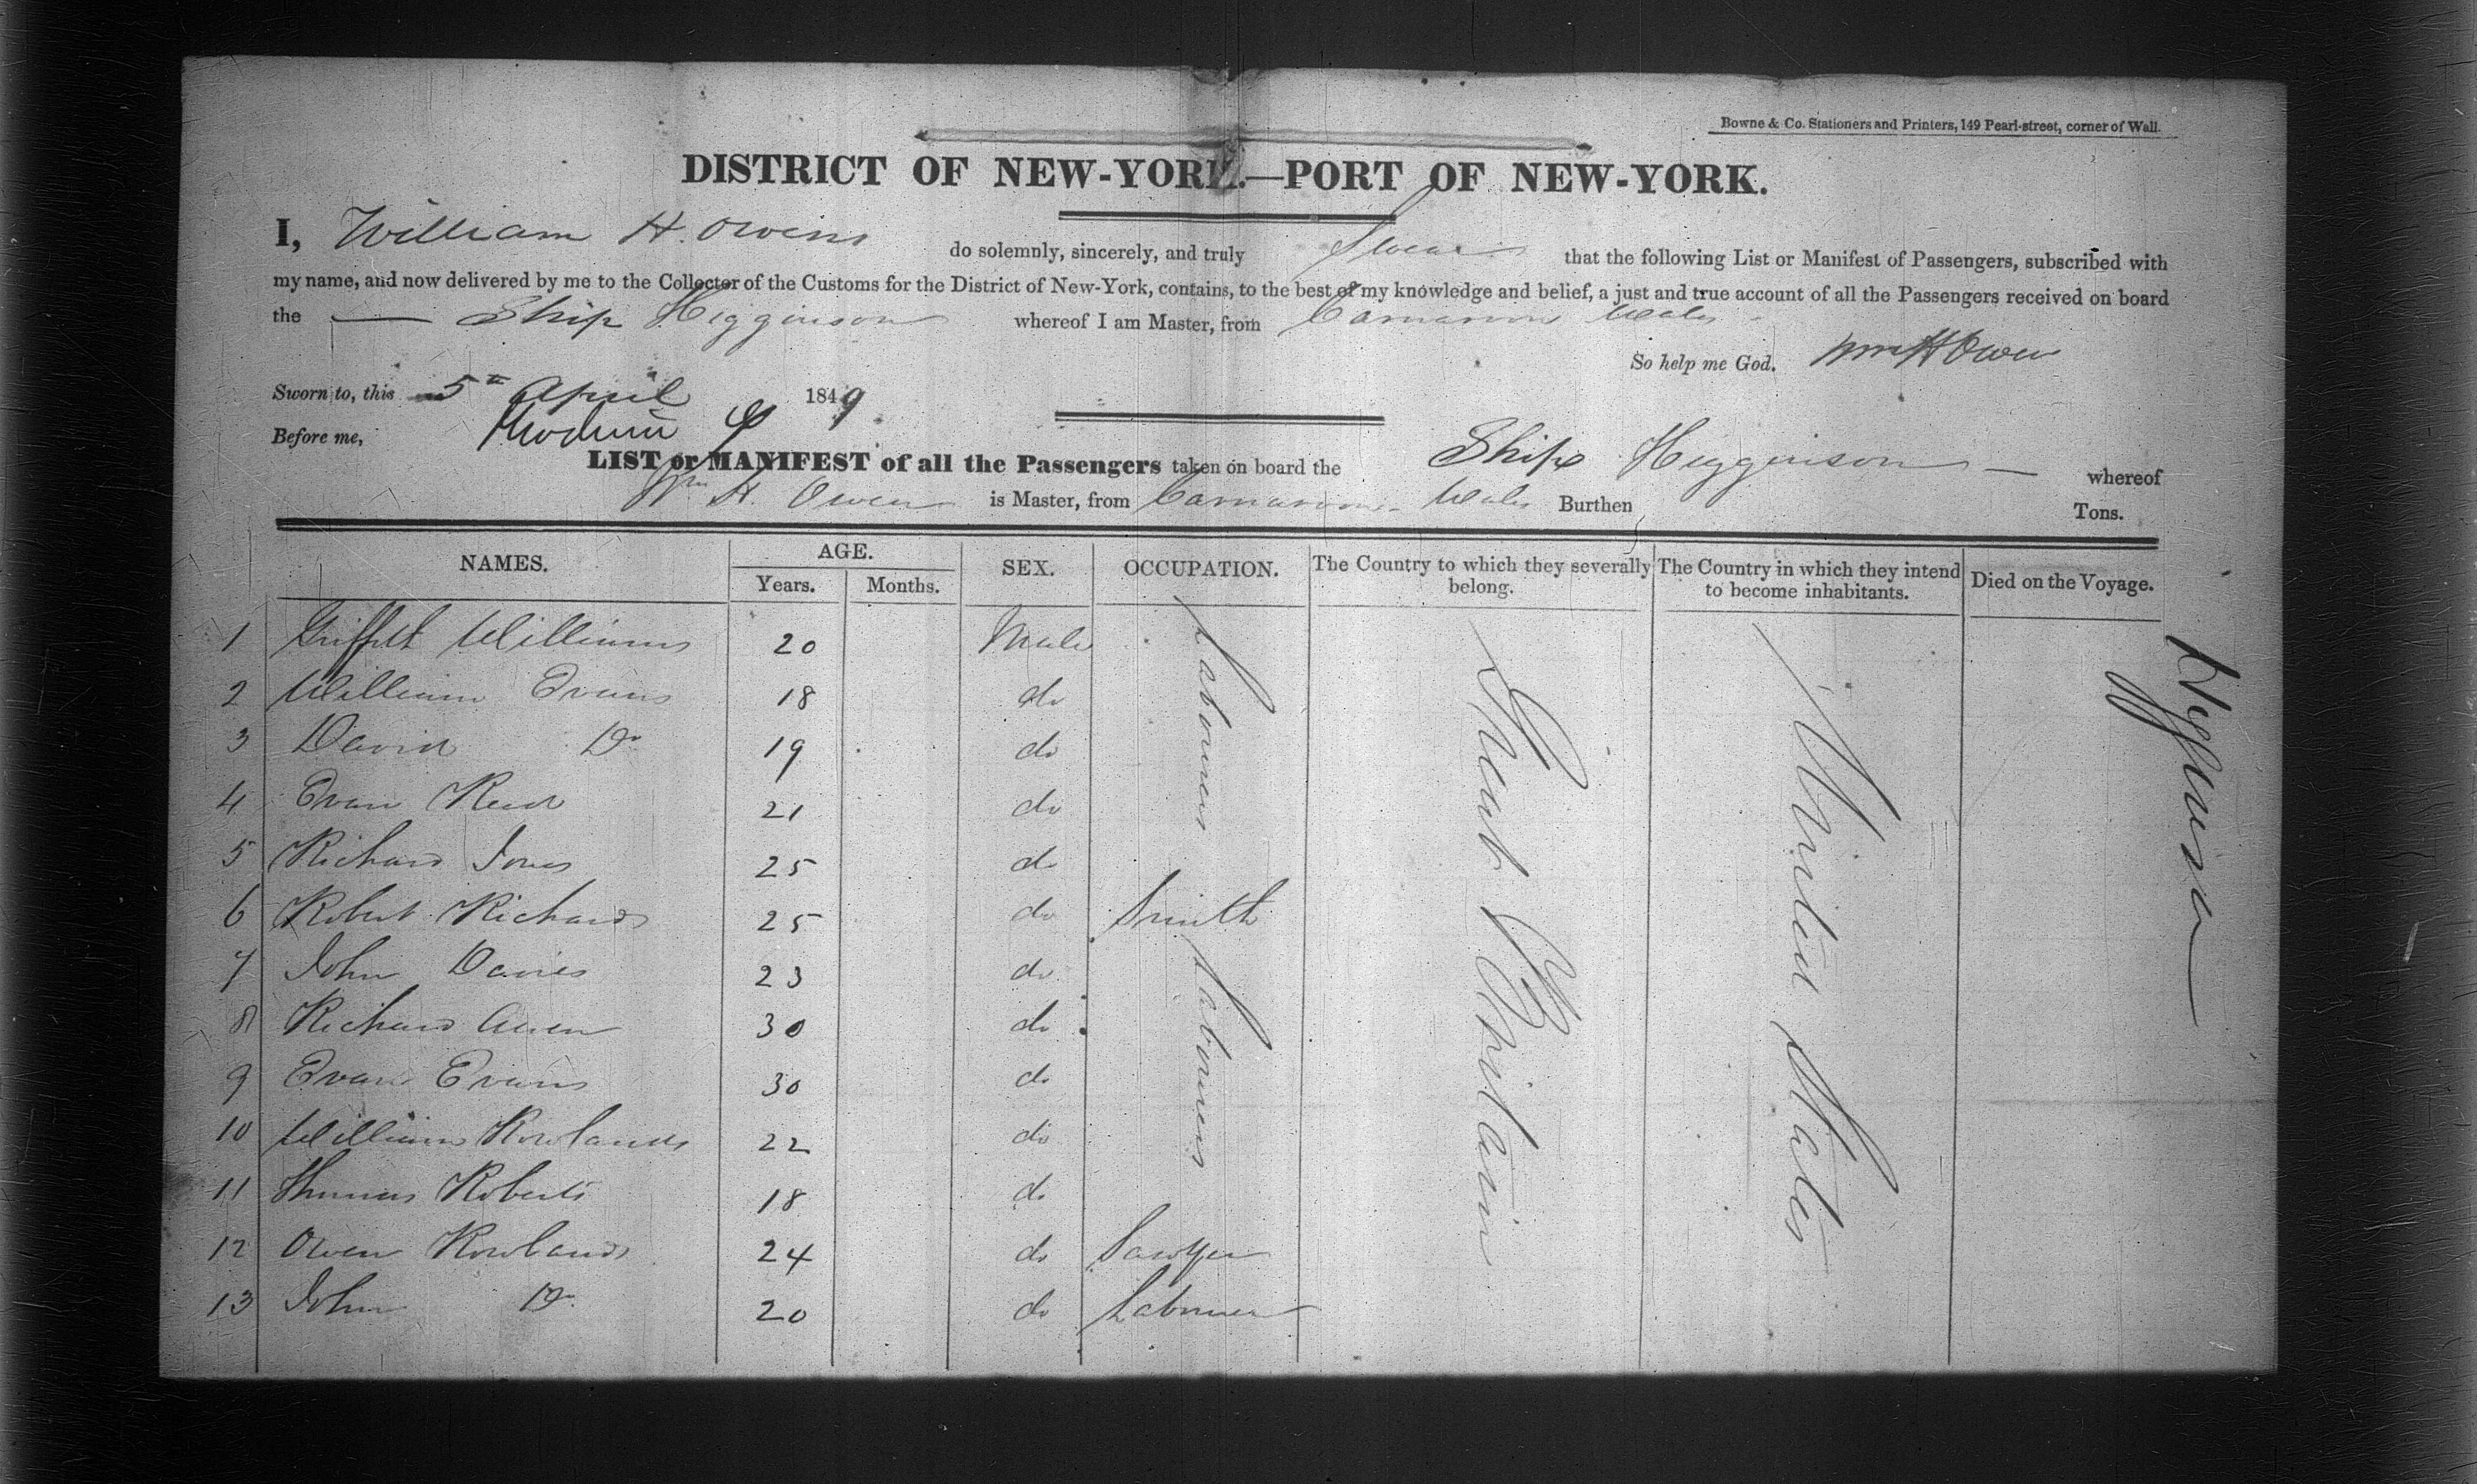 Bowne & Co. Stationers and Printers, 149 Pearl-street, corner of Wall.
DISTRICT OF NEW-YORK.—PORT OF NEW-YORK.
I, William H. Owens do solemnly, sincerely, and truly Swear that the following List or Manifest of Passengers, subscribed with
my name, and now delivered by me to the Collector of the Customs for the District of New-York, contains, to the best of my knowledge and belief, a just and true account of all the Passengers received on board
the — Ship Higginson whereof I am Master, from Carnarvon Wales
So help me God. Wm H Owen
Sworn to, this 5th April 1849
Before me,
LIST or MANIFEST of all the Passengers taken on board the Ship Higginson — whereof
Wm H. Owen is Master, from Carnarvon Wales Burthen Tons.
NAMES. AGE. SEX. OCCUPATION. The Country to which they severally belong. The Country in which they intend to become inhabitants. Died on the Voyage.
Years. Months.
1 Griffith Williams 20 Male Labourers Great Britain United States
2 William Evans 18 do
3 David Do 19 do
4 Evan 21 do
5 Richard Jones 25 do
6 Robert Richards 25 do Smith
7 John Davies 23 do Labourers
8 Richard Owen 30 do
9 Evan Evans 30 do
10 William Rowlands 22 do
11 Thomas Roberts 18 do
12 Owen Rowlands 24 do Sawyer
13 John Do 20 do Labourer
Higginson